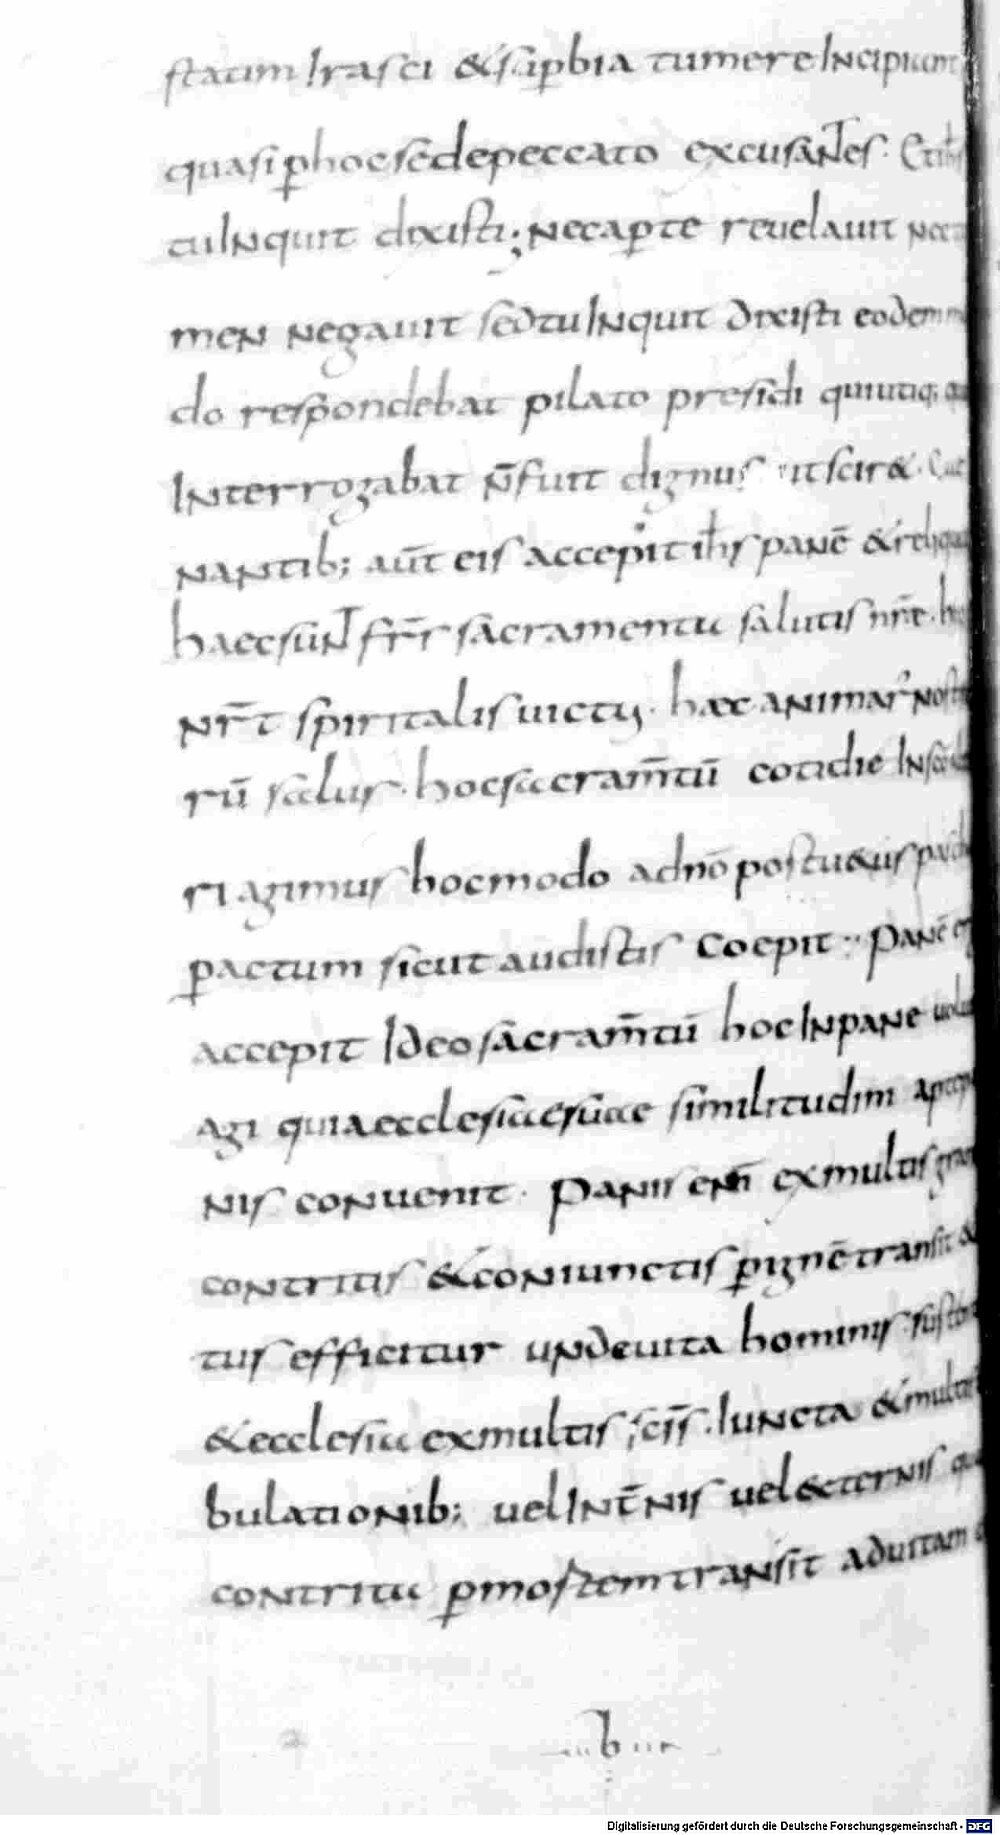 statim Irasci & supbia tumere Incipiunt
quasi phoc se de peccato excusantes. Et ihs
tu Inquit dixisti; nec apte reuelauit nec ta
men negauit sed tu Inquit dixisti eodem mo
do respondebat pilato presidi qui utiq;
Interrogabat n̄ fuit dignus ut scir&.
nantib; aūt eis accepit ihs panē & reliqua
haec sunt frr̄ sacramentu salutis nr̄e.
nr̄t spiritalis uictus. haec animar̄ nostra
rū salus. hoc sacram̄tū cotidie In
ri agimus hoc modo a dnō postquā
pactum sicut audistis coepit. Panē
accepit Ideo sacram̄tū hoc In pane uolu
agi quia ecclesiae suae similitudini ap
nis conuenit. panis enī ex multis gra
contritis & coniunctis p ignē transit &
tus efficitur unde uita hominis
& ecclesia ex multis sc̄is. Iuncta & multis
bulationib; uel Int̄nis uel externis
contrita p mortem transit ad uitam
b
Digitalisierung gefördert durch die Deutsche Forschungsgemeinschaft - DFG